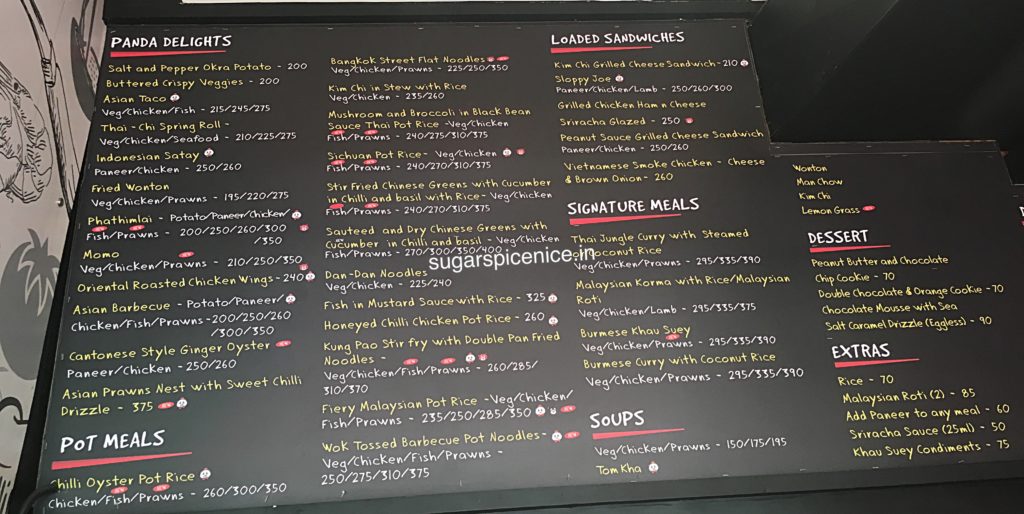 PANDA DELIGHTS
Salt and Pepper Okra Potato - 200
Buttered Crispy Veggies - 200
Asian Taco
Veg/Chicken/Fish - 215/245/275
Thai - Chi Spring Roll -
Veg/Chicken/Seafood - 210/225/275
Indonesian Satay
Paneer/Chicken - 250/260
Fried Wonton
Veg/Chicken/Prawns - 195/220/275
Phathimlai - Potato/Paneer/Chicken/
Fish/Prawns - 200/250/260/300
/350
Momo
Veg/Chicken/Prawns - 210/250/350
Oriental Roasted Chicken Wings - 240
Asian Barbecue - Potato/Paneer/
Chicken/Fish/Prawns - 200/250/260
/300/350
Cantonese Style Ginger Oyster
Paneer/Chicken - 250/260
Asian Prawns Nest with Sweet Chilli
Drizzle - 375
POT MEALS
Chilli Oyster Pot Rice
Chicken/Fish/Prawns - 260/300/350
Bangkok Street Flat Noodles
Veg/Chicken/Prawns - 225/250/350
Kim Chi in Stew with Rice
Veg/Chicken - 235/260
Mushroom and Broccoli in Black Bean
Sauce Thai Pot Rice - Veg/Chicken
Fish/Prawns - 240/275/310/375
Sichuan Pot Rice - Veg/Chicken
Fish/Prawns - 240/270/310/375
Stir Fried Chinese Greens with Cucumber
in Chilli and basil with Rice - Veg/Chicken
Fish/Prawns - 240/270/310/375
Sauteed and Dry Chinese Greens with
Cucumber in Chilli and basil - Veg/Chicken
Fish/Prawns - 270/300/350/400
Dan-Dan Noodles
Veg/Chicken - 225/240
Fish in Mustard Sauce with Rice - 325
Honeyed Chilli Chicken Pot Rice - 260
Kung Pao Stir fry with Double Pan Fried
Noodles -
Veg/Chicken/Fish/Prawns - 260/285/
310/370
Fiery Malaysian Pot Rice - Veg/Chicken/
Fish/Prawns - 235/250/285/350
Wok Tossed Barbecue Pot Noodles -
Veg/Chicken/Fish/Prawns -
250/275/310/375
LOADED SANDWICHES
Kim Chi Grilled Cheese Sandwich - 210
Sloppy Joe
Paneer/Chicken/Lamb - 250/260/300
Grilled Chicken Ham n Cheese
Sriracha Glazed - 250
Peanut Sauce Grilled Cheese Sandwich
Paneer/Chicken - 250/260
Vietnamese Smoke Chicken - Cheese
& Brown Onion - 260
SIGNATURE MEALS
Thai Jungle Curry with Steamed
Coconut Rice
Veg/Chicken/Prawns - 295/335/390
Malaysian Korma with Rice/Malaysian
Roti
Veg/Chicken/Lamb - 295/335/375
Burmese Khau Suey
Veg/Chicken/Prawns - 295/335/390
Burmese Curry with Coconut Rice
Veg/Chicken/Prawns - 295/335/390
SOUPS
Veg/Chicken/Prawns - 150/175/195
Tom Kha
Wonton
Man Chow
Kim Chi
Lemon Grass
DESSERT
Peanut Butter and Chocolate
Chip Cookie - 70
Double Chocolate & Orange Cookie - 70
Chocolate Mousse with Sea
Salt Caramel Drizzle (Eggless) - 90
EXTRAS
Rice - 70
Malaysian Roti (2) - 85
Add Paneer to any meal - 60
Sriracha Sauce (25ml) - 50
Khau Suey Condiments - 75
sugarspicenice.in